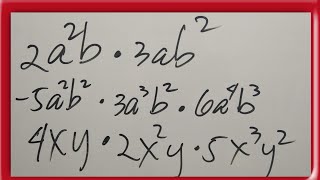 2a²b · 3ab²
-5a²b² · 3a³b² · 6a⁴b³
4xy · 2x²y · 5x³y²